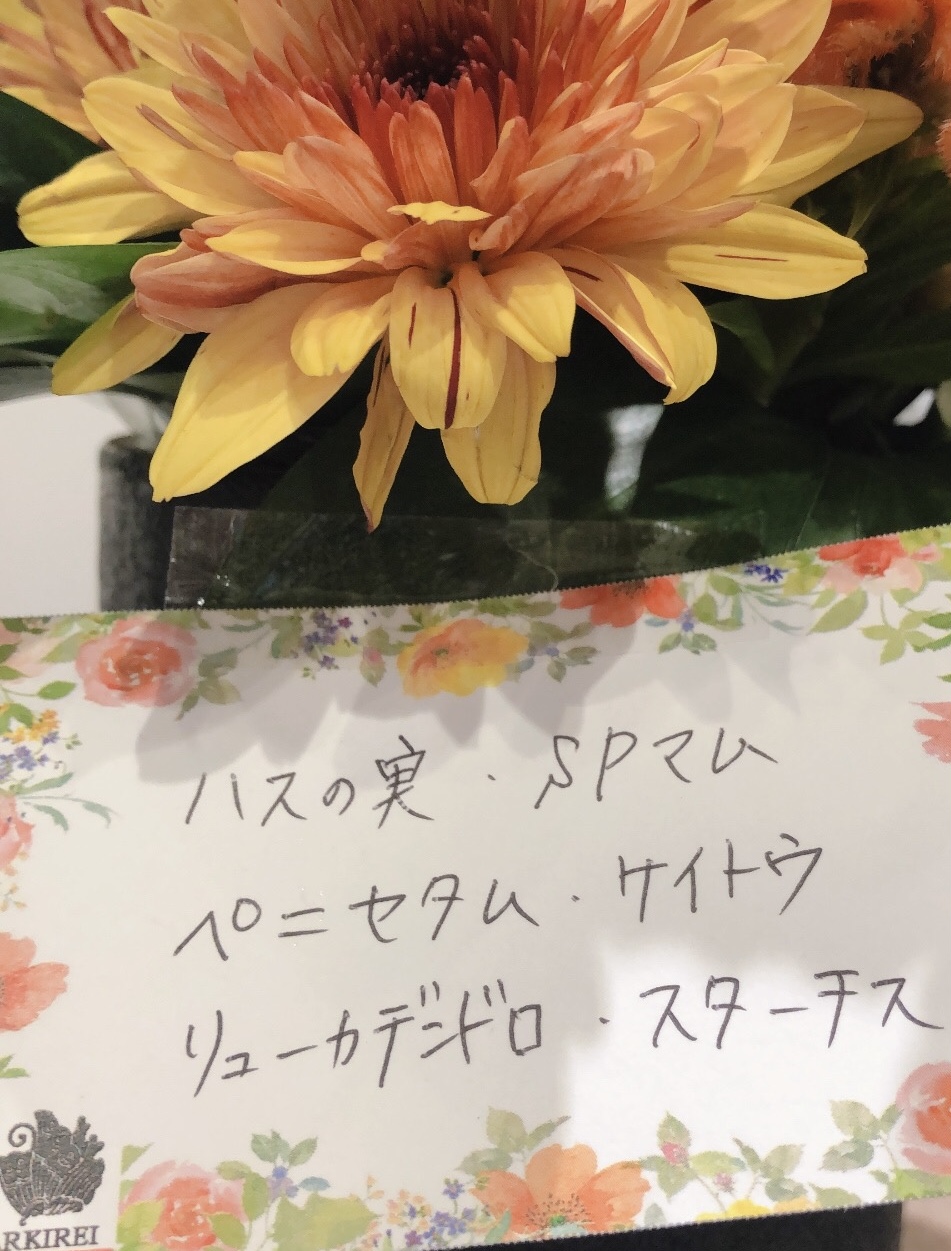 ハスの実・SPマム
ペニセタム・ケイトウ
リューカデンドロ・スターチス
RKIREI